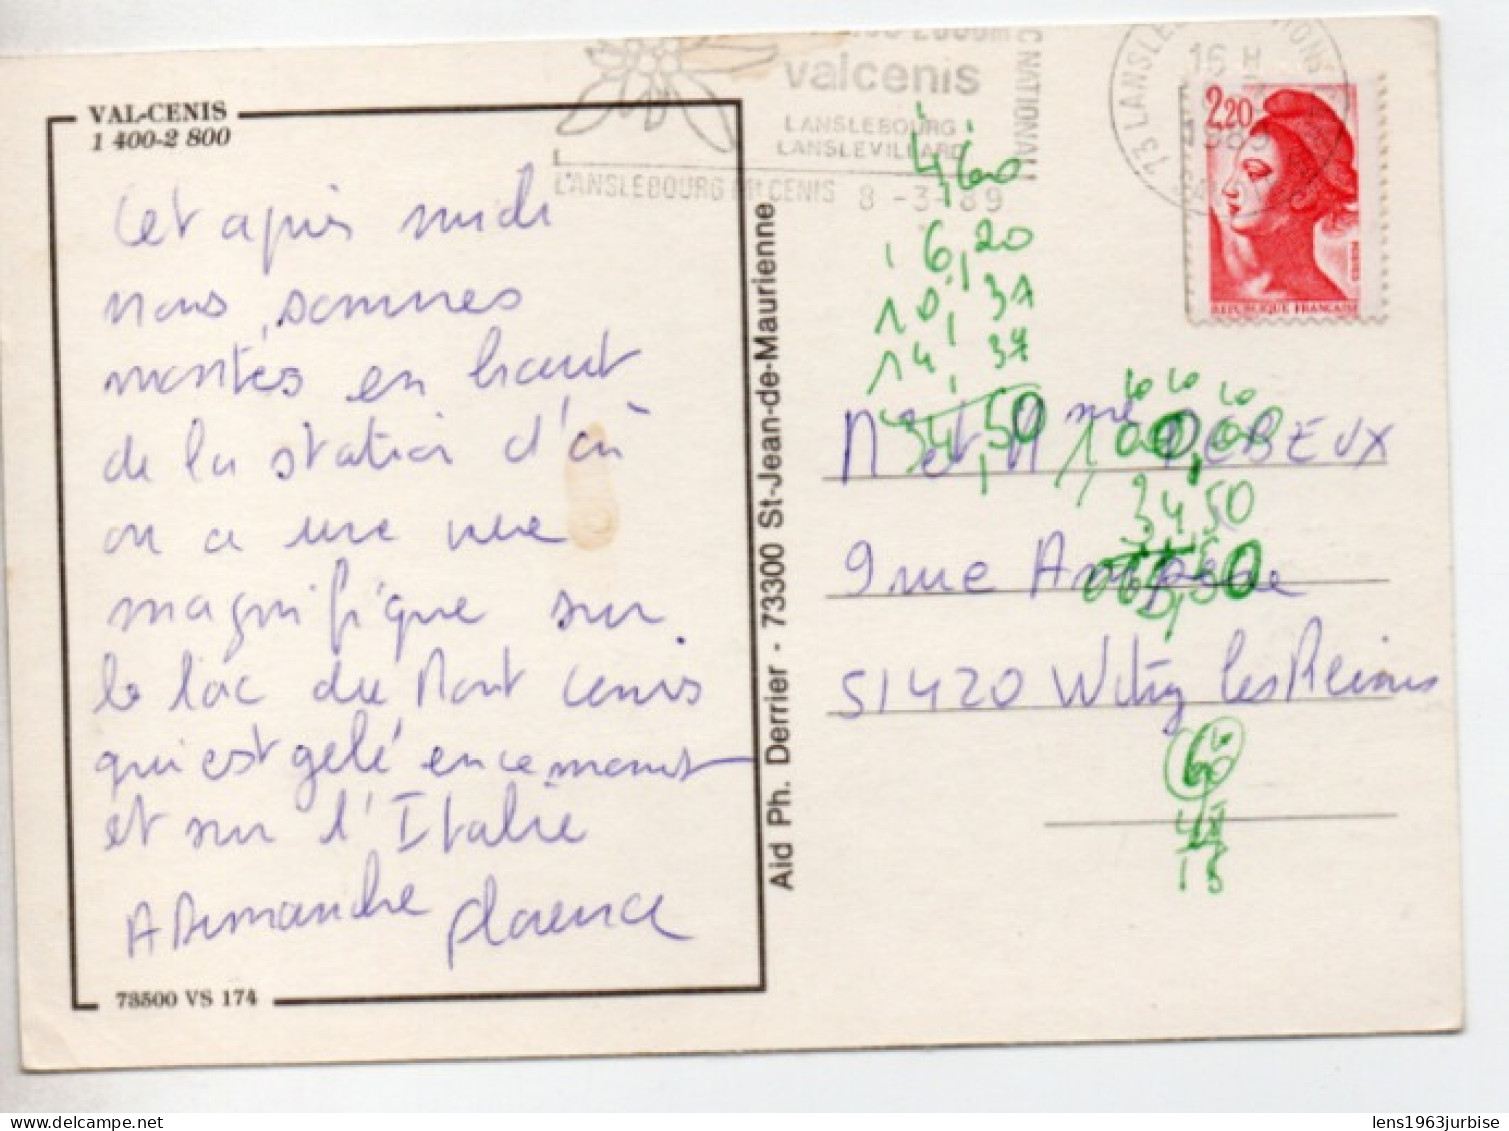 VAL-CENIS
1 400-2 800
Cet après midi
nous sommes
montés en haut
de la station d'où
on a une vue
magnifique sur
le lac du Mont Cenis
qui est gelé en ce moment
et sur l'Italie
A Dimanche Florence
73500 VS 174
Aid Ph. Derrier - 73300 St-Jean-de-Maurienne
valcenis
LANSLEBOURG
LANSLEVILLARD
C NATIONAL
LANSLEBOURG CENIS 8 -3-89
73 LANSLE
16 H
1989
2,20
REPUBLIQUE FRANÇAISE
6,20
10,31
14,37
34,50
100,00
34 50
M et Mme DEBEUX
9 rue
51420 Witry les Reims
15
lens1963jurbise